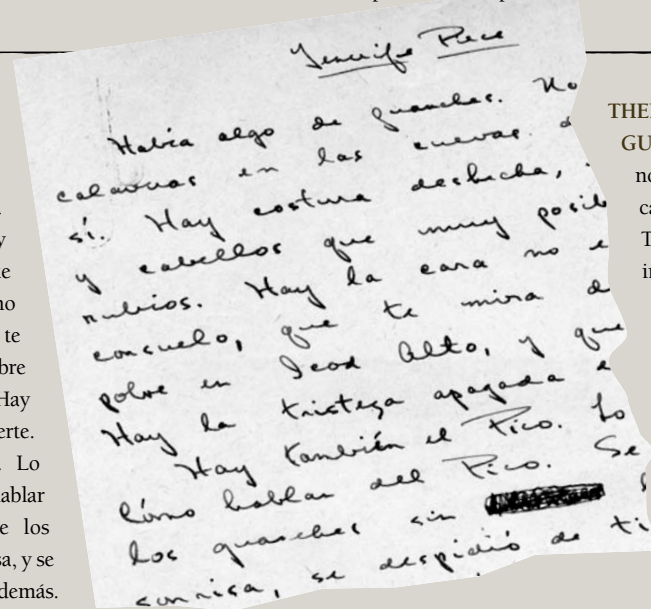 Tenerife
Había algo de guanches. No
calaveras en las cuevas d
sí. Hay costura deshecha,
y cabellos que muy posib
rubios. Hay la cara no e
consuelo, que te mira d
pobre en Icod Alto, y que
Hay la tristeza apagada e
Hay también el Pico. Lo
Cómo hablar del Pico. Se
los guanches sin
sonrisa, se despidió de ti
y
e
no
te
bre
Hay
erte.
. Lo
ablar
e los
sa, y se
demás.
THE
GU
no
ca
T
in